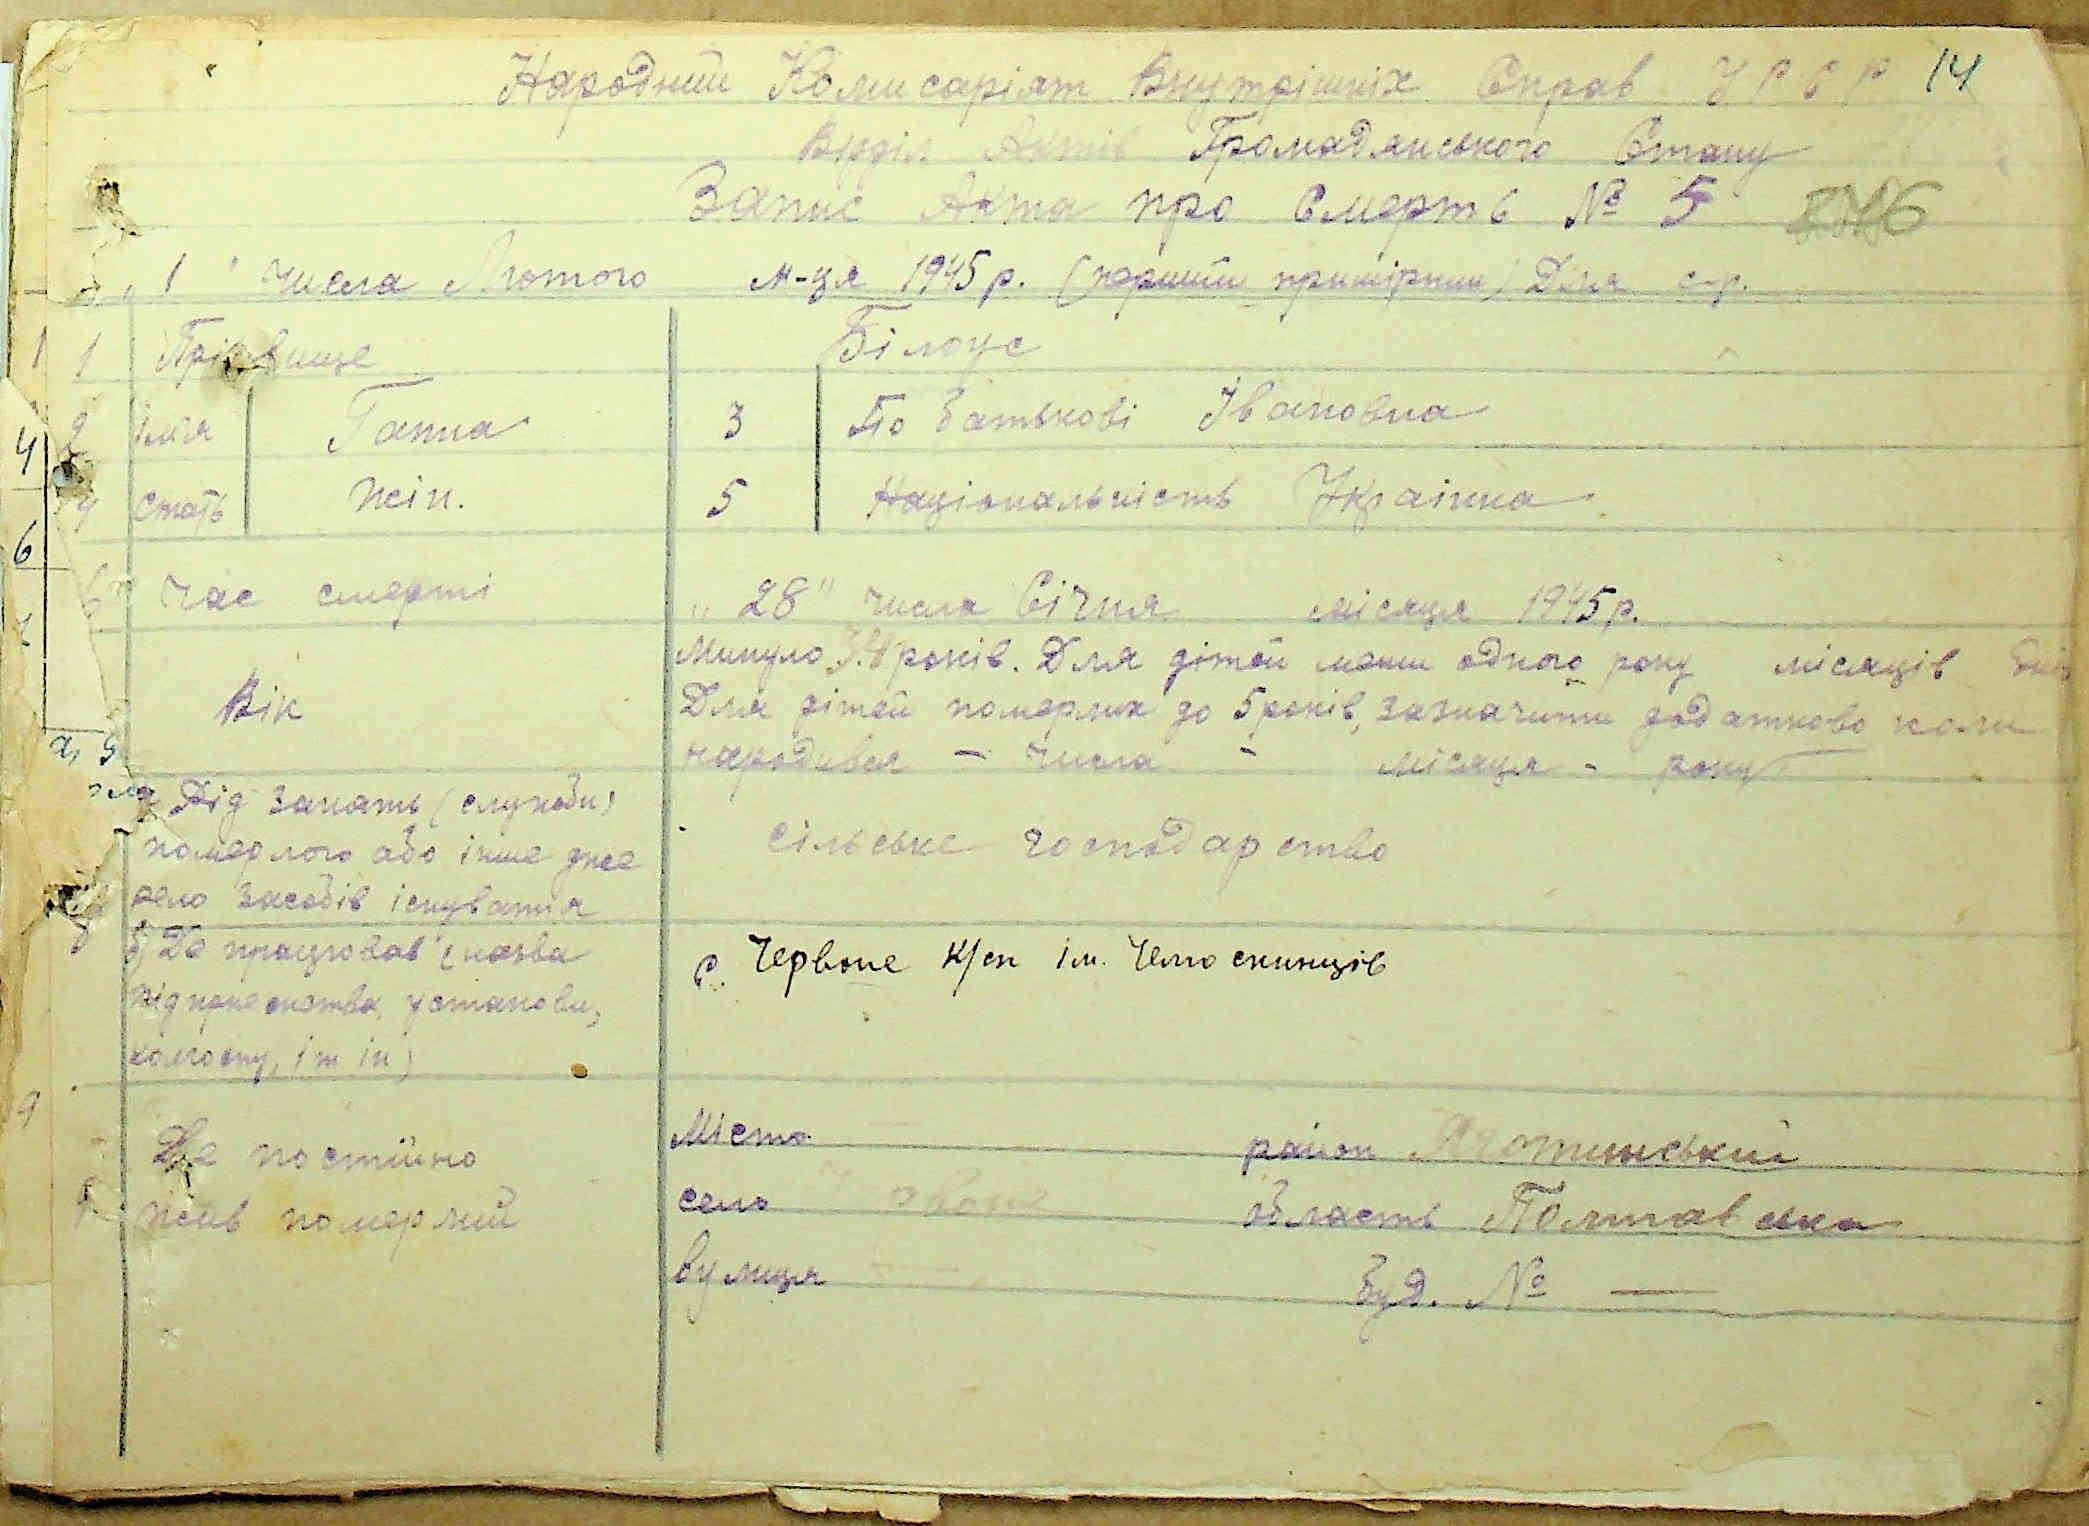 14
Народний Комисаріят Внутрішніх Справ УРСР
Відділ Актів Громадянського Стану
Запис Акта про Смерть № 5
"1" числа Лютого м-ця 1945 р. (перший примірник) Для с-р.
1 Прізвище Білоус
2 Ім'я Ганна 3 По батькові Івановна
4 Стать жін. 5 Національність Українка
6 Час смерті "28" числа Січня місяця 1945 р.
Вік
Минуло років. Для дітей менш одного року місяців
Для дітей померлих до 5 років, зазначити додатково коли
народився – числа – місяця - року
Рід занять (служби)
померлого або інше дже
рело засобів існування
сільське господарство
б) Де працював (назва
підприємства, установи,
колгоспу, і т ін)
с. Червоне к/сп ім. Челюскинців
9 Де постійно
жив померлий
Місто район Яготинський
село Червоне область Полтавська
вулиця — буд. № —